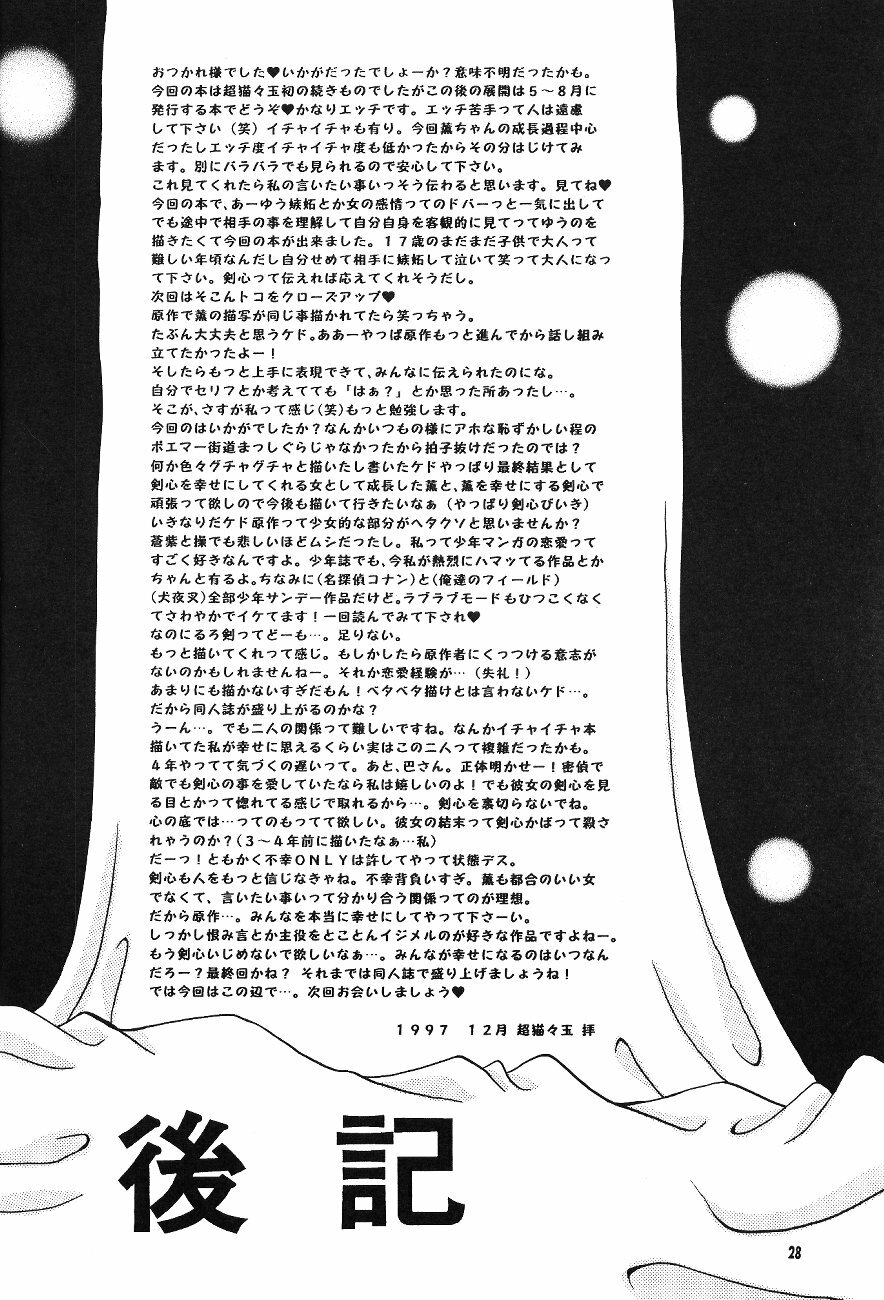 おつかれ様でした♥いかがだったでしょーか？意味不明だったかも。
今回の本は超猫々玉初の続きものでしたがこの後の展開は５～８月に
発行する本でどうぞ♥かなりエッチです。エッチ苦手って人は遠慮
して下さい（笑）イチャイチャも有り。今回薫ちゃんの成長過程中心
だったしエッチ度イチャイチャ度も低かったからその分はじけてみ
ます。別にバラバラでも見られるので安心して下さい。
これ見てくれたら私の言いたい事いっそう伝わると思います。見てね♥
今回の本で、あーゆう嫉妬とか女の感情ってのドバーっと一気に出して
でも途中で相手の事を理解して自分自身を客観的に見てってゆうのを
描きたくて今回の本が出来ました。１７歳のまだまだ子供で大人って
難しい年頃なんだし自分せめて相手に嫉妬して泣いて笑って大人になっ
て下さい。剣心って伝えれば応えてくれそうだし。
次回はそこんトコをクローズアップ♥
原作で薫の描写が同じ事描かれてたら笑っちゃう。
たぶん大丈夫と思うケド。ああーやっぱ原作もっと進んでから話し組み
立てたかったよー！
そしたらもっと上手に表現できて、みんなに伝えられたのにな。
自分でセリフとか考えてても「はぁ？」とか思った所あったし…。
そこが、さすが私って感じ(笑)もっと勉強します。
今回のはいかがでしたか？なんかいつもの様にアホな恥ずかしい程の
ポエマー街道まっしぐらじゃなかったから拍子抜けだったのでは？
何か色々グチャグチャと描いたし書いたケドやっぱり最終結果として
剣心を幸せにしてくれる女として成長した薫と、薫を幸せにする剣心で
頑張って欲しので今後も描いて行きたいなぁ（やっぱり剣心びいき）
いきなりだケド原作って少女的な部分がヘタクソと思いませんか？
蒼紫と操でも悲しいほどムシだったし。私って少年マンガの恋愛って
すごく好きなんですよ。少年誌でも、今私が熱烈にハマッてる作品とか
ちゃんと有るよ。ちなみに(名探偵コナン)と(俺達のフィールド)
(犬夜叉)全部少年サンデー作品だけど。ラブラブモードもひつこくなく
てさわやかでイケてます！一回読んでみて下され♥
なのにるろ剣ってどーも…。足りない。
もっと描いてくれって感じ。もしかしたら原作者にくっつける意志が
ないのかもしれませんねー。それか恋愛経験が…（失礼！）
あまりにも描かないすぎだもん！ベタベタ描けとは言わないケド…。
だから同人誌が盛り上がるのかな？
うーん…。でも二人の関係って難しいですね。なんかイチャイチャ本
描いてた私が幸せに思えるくらい実はこの二人って複雑だったかも。
４年やってて気づくの遅いって。あと、巴さん。正体明かせー！密偵で
敵でも剣心の事を愛していたなら私は嬉しいのよ！でも彼女の剣心を見
る目とかって惚れてる感じで取れるから…。剣心を裏切らないでね。
心の底では…ってのもってて欲しい。彼女の結末って剣心かばって殺さ
れゃうのか？(３～４年前に描いたなぁ…私)
だーっ！ともかく不幸ＯＮＬＹは許してやって状態デス。
剣心も人をもっと信じなきゃね。不幸背負いすぎ。薫も都合のいい女
でなくて、言いたい事いって分かり合う関係ってのが理想。
だから原作…。みんなを本当に幸せにしてやって下さーい。
しっかし恨み言とか主役をとことんイジメルのが好きな作品ですよねー。
もう剣心いじめないで欲しいなぁ…。みんなが幸せになるのはいつなん
だろー？最終回かね？ それまでは同人誌で盛り上げましょうね！
では今回はこの辺で…。次回お会いしましょう♥
１９９７　１２月 超猫々玉 拝
後記
28